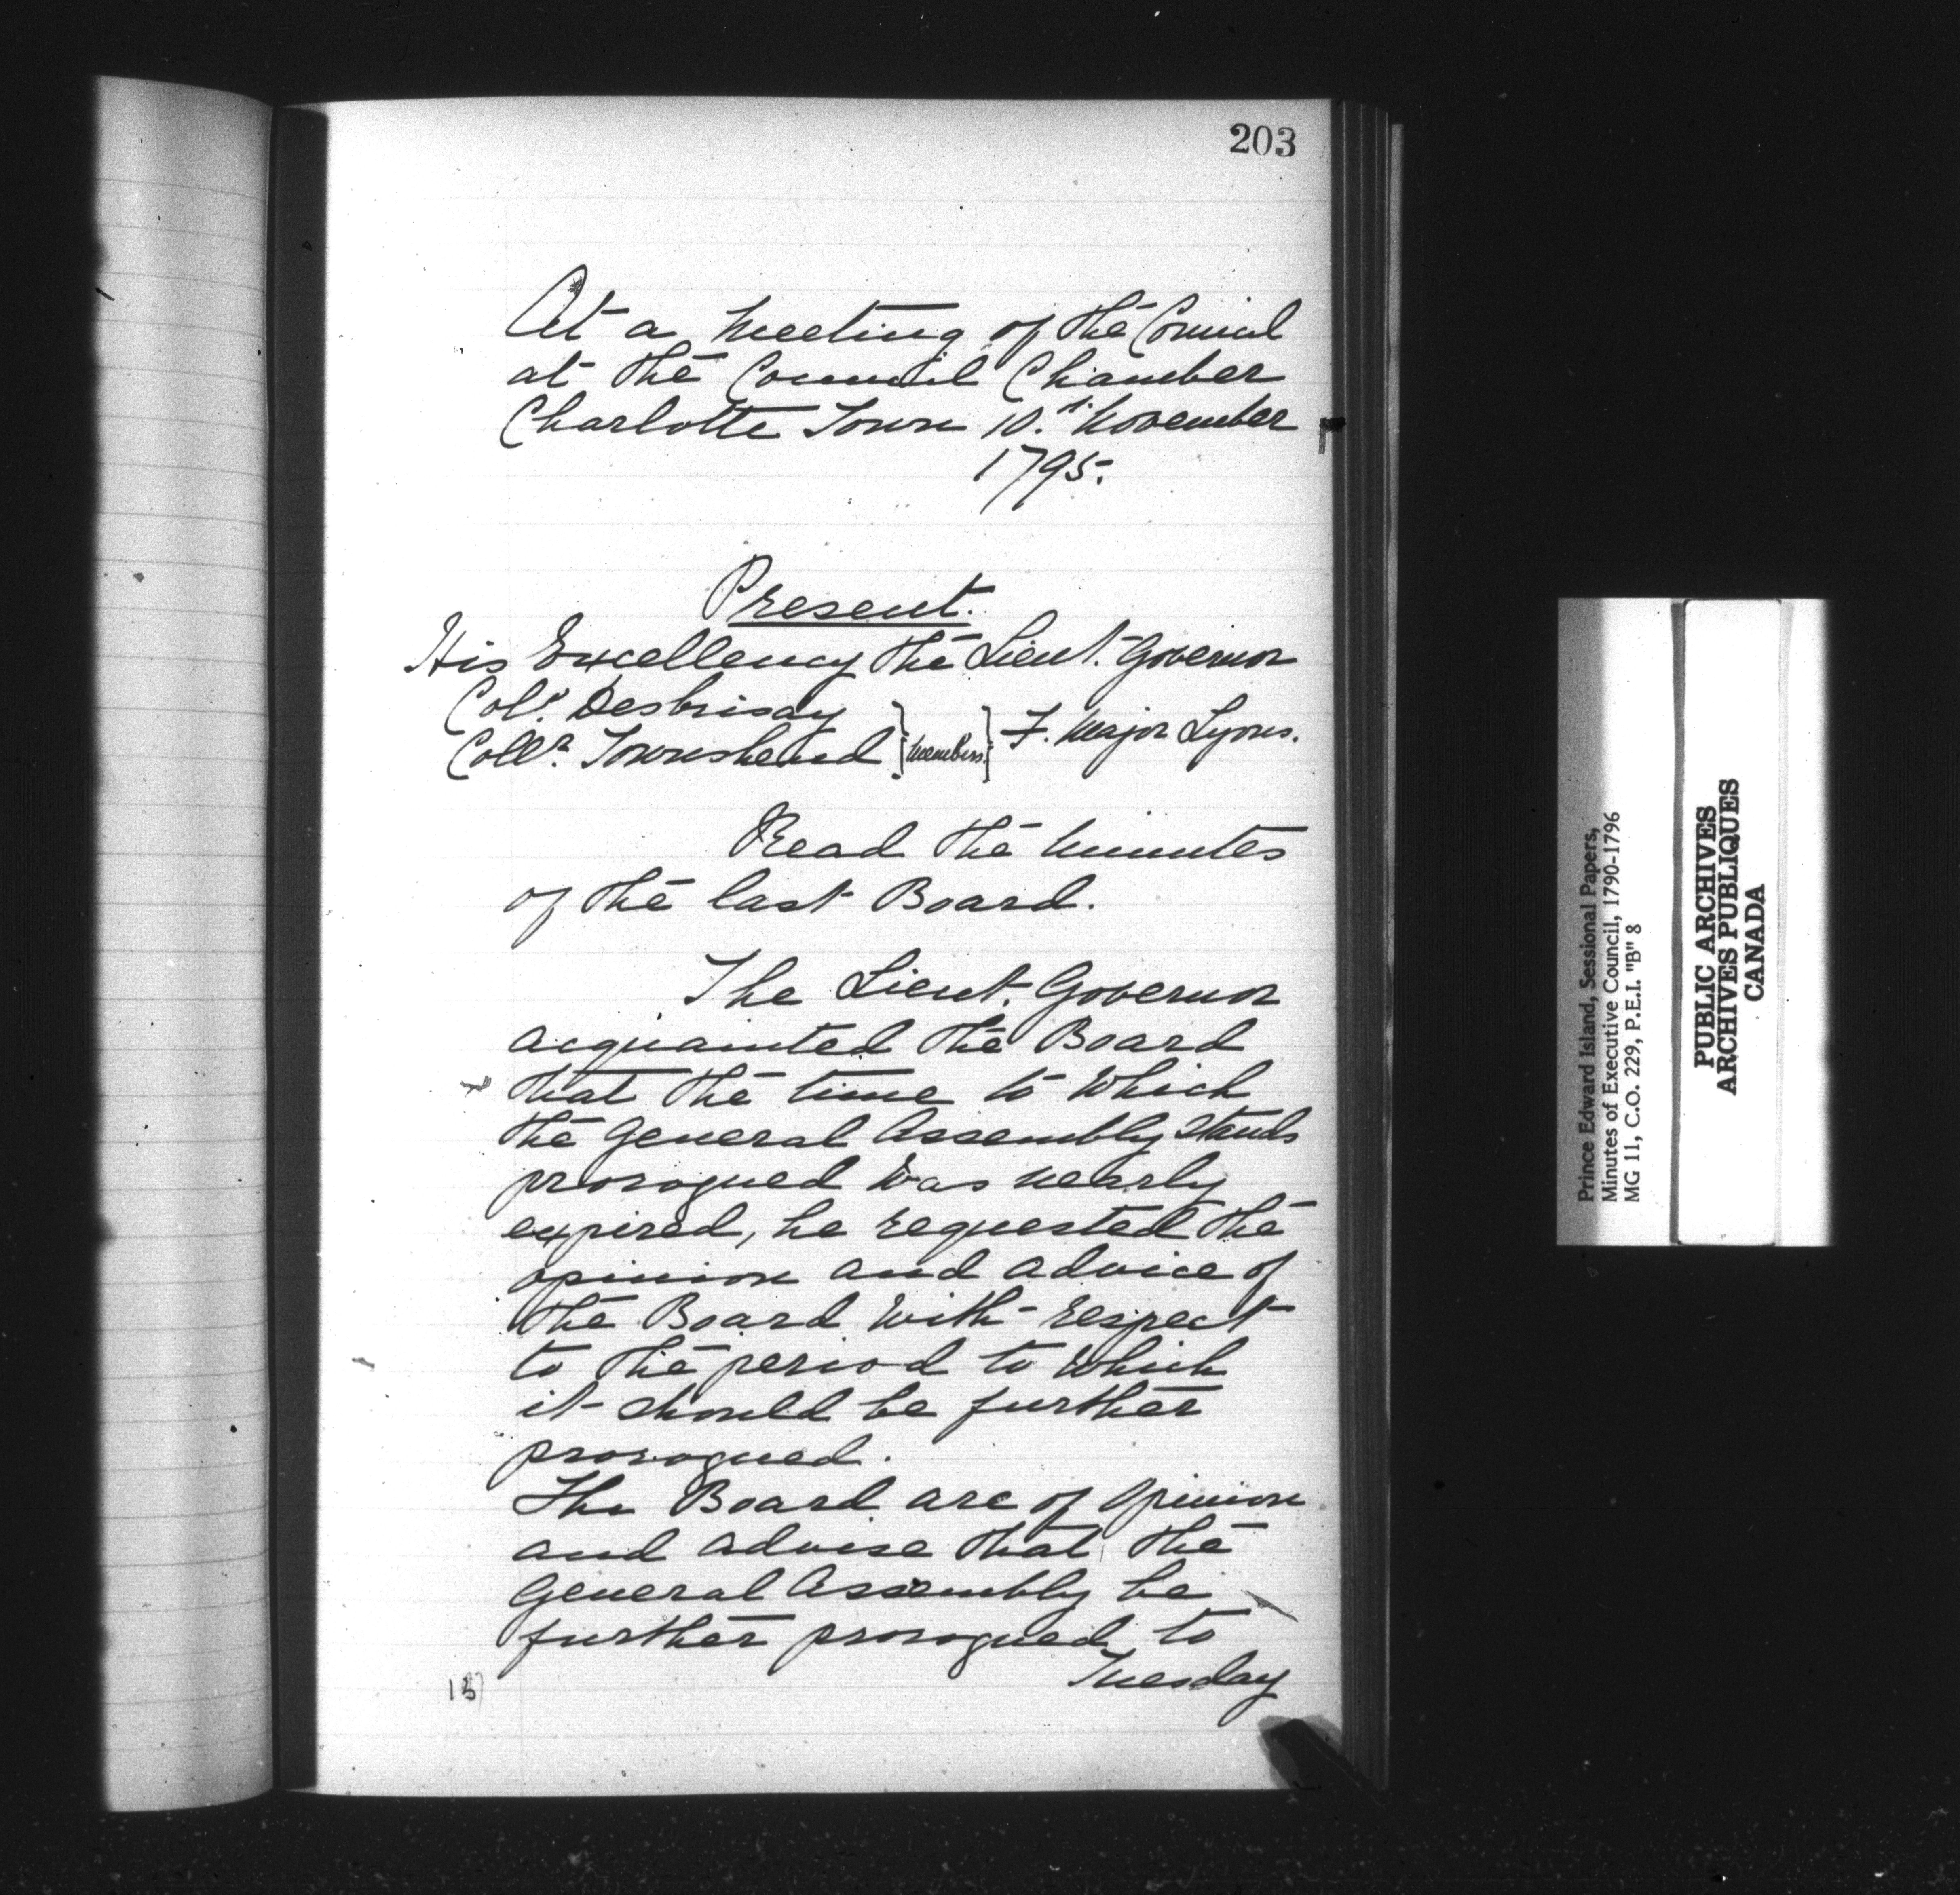 203
At a Meeting of the Council
at the Council Chamber
Charlotte Town 10.th November
1795.
Present.
His Excellency the Lieut. Governor
Col.l Desbrisay
Coll.r Townshend } Members } F. Major Lyons.
Read the Minutes
of the last Board.
The Lieut. Governor
acquainted the Board
that the time to which
the General Assembly Stands
prorogued was nearly
expired, he requested the
opinion and advice of
the Board with respect
to the period to which
it should be further
prorogued.
The Board are of Opinion
and advise that the
General Assembly be
further prorogued to
Tuesday
Prince Edward Island, Sessional Papers,
Minutes of Executive Council, 1790-1796
MG 11, C.O. 229, P.E.I. "B" 8
PUBLIC ARCHIVES
ARCHIVES PUBLIQUES
CANADA